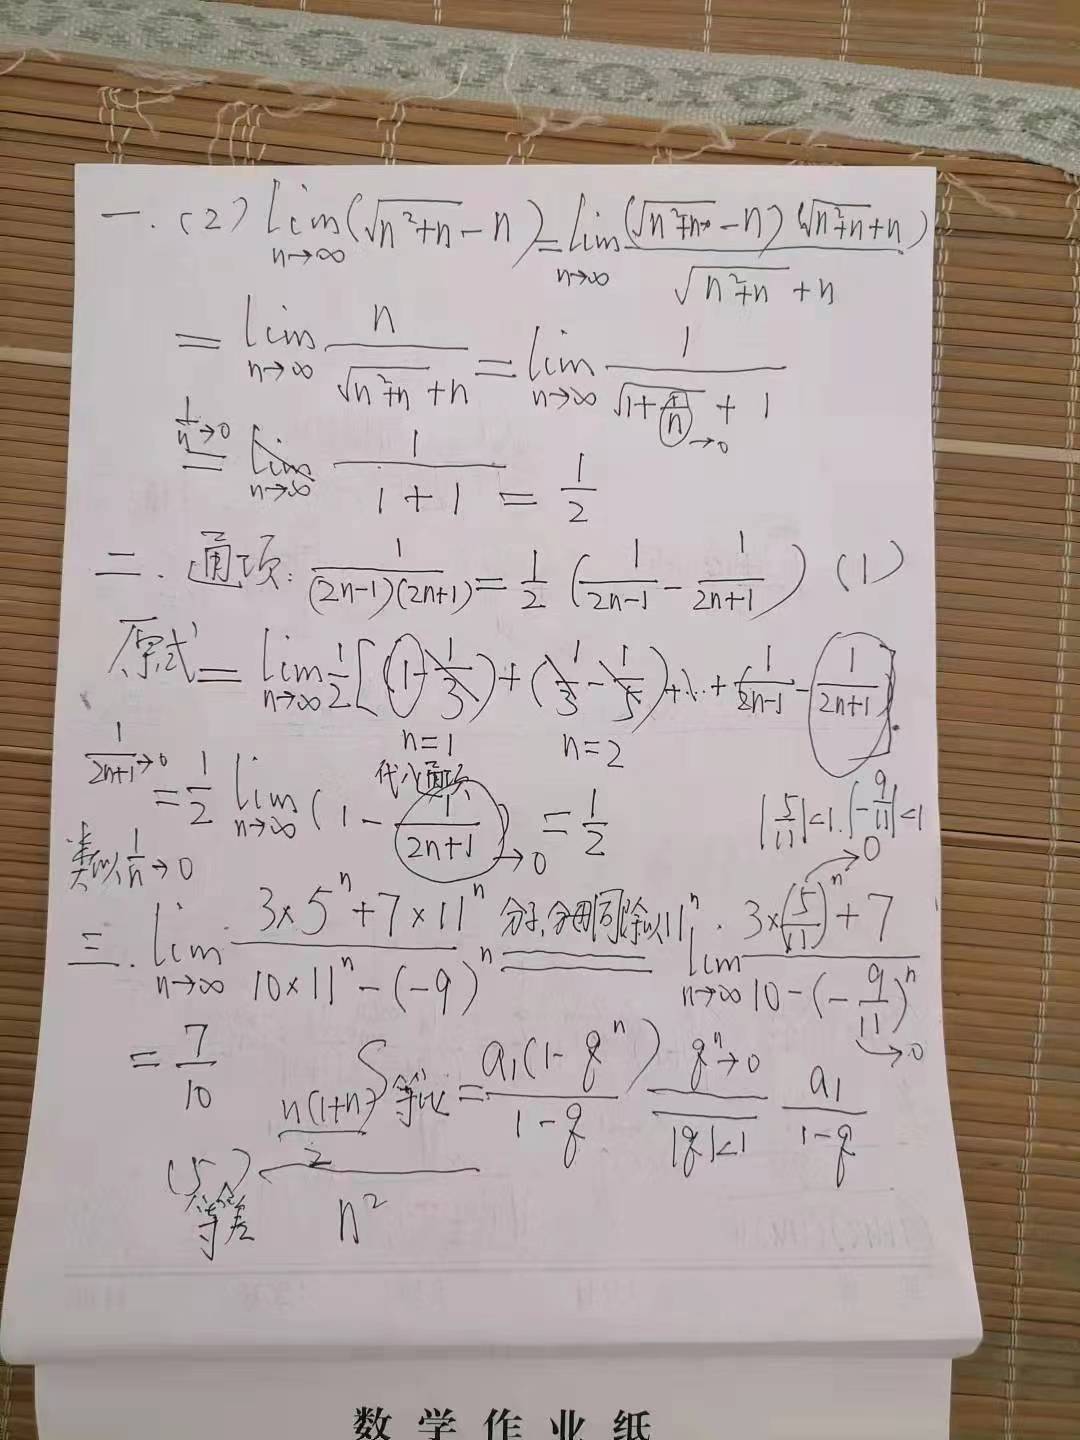 一.(2) lim n→∞ (√(n²+n) - n) = lim n→∞ (√(n²+n) - n)(√(n²+n) + n) / (√(n²+n) + n)
= lim n→∞ n / (√(n²+n) + n) = lim n→∞ 1 / (√(1 + 1/n) + 1) →0
1/n→0
= lim n→∞ 1 / (1+1) = 1/2
二.通项: 1 / ((2n-1)(2n+1)) = 1/2 (1/(2n-1) - 1/(2n+1)) (1)
原式 = lim n→∞ 1/2 [(1 - 1/3) + (1/3 - 1/5) + ... + (1/(2n-1) - 1/(2n+1))]
n=1 n=2
代入通项
1/(2n+1)→0
= 1/2 lim n→∞ (1 - 1/(2n+1)) →0 = 1/2
|5/11|<1. |-9/11|<1
类似 1/n→0
三. lim n→∞ (3×5ⁿ + 7×11ⁿ) / (10×11ⁿ - (-9)ⁿ) 分子,分母同除以11ⁿ. lim n→∞ (3×(5/11)ⁿ + 7) / (10 - (-9/11)ⁿ) →0 →0
= 7/10
S等比 = a₁(1-qⁿ) / (1-q) qⁿ→0 |q|<1 a₁ / (1-q)
(5) n(1+n)/2 / n²
等差
数学作业纸